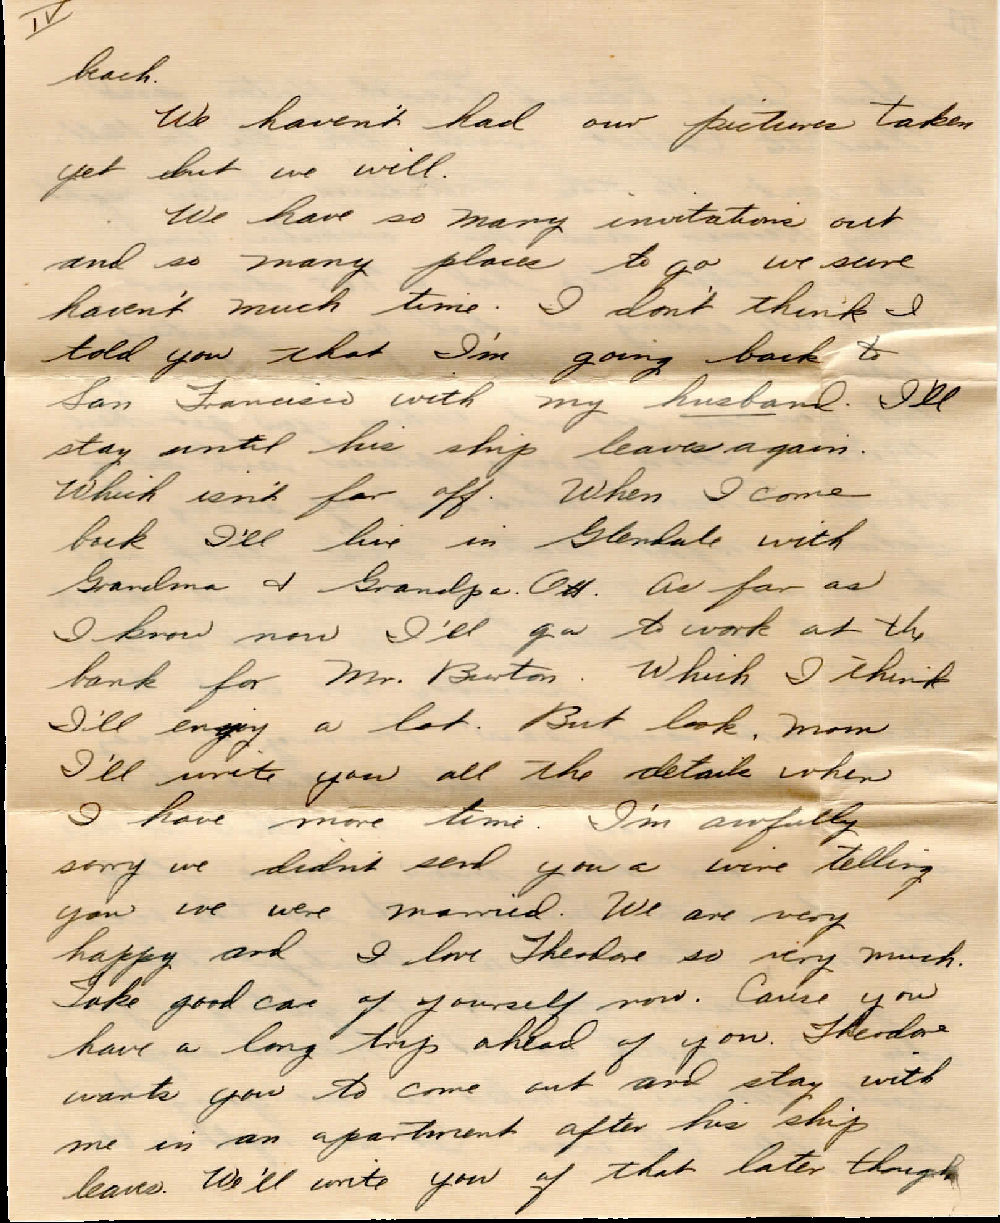 IV
beach.
We haven't had our pictures taken
yet but we will.
We have so many invitations out
and so many places to go we sure
haven't much time. I don't think I
told you that I'm going back to
San Francisco with my husband. I'll
stay until his ship leaves again.
Which isn't far off. When I come
back I'll live in Glendale with
Grandma & Grandpa Ott. As far as
I know now I'll go to work at the
bank for Mr. Burton. Which I think
I'll enjoy a lot. But look, mom
I'll write you all the details when
I have more time. I'm awfully
sorry we didn't send you a wire telling
you we were married. We are very
happy and I love Theodore so very much.
Take good care of yourself now. Cause you
have a long trip ahead of you. Theodore
wants you to come out and stay with
me in an apartment after his ship
leaves. We'll write you of that later though